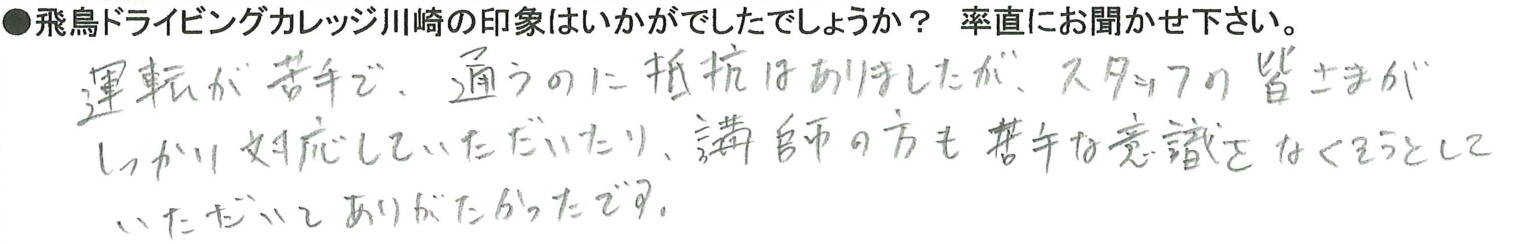 ●飛鳥ドライビングカレッジ川崎の印象はいかがでしたでしょうか？ 率直にお聞かせ下さい。
運転が苦手で、通うのに抵抗はありましたが、スタッフの皆さまが
しっかり対応していただいたり、講師の方も苦手な意識をなくそうとして
いただいてありがたかったです。